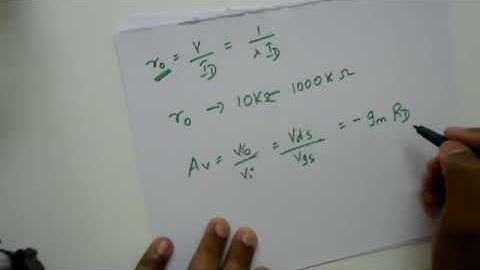 r₀ = V / I_D = 1 / λ I_D
r₀ → 10KΩ 1000KΩ
A_v = v₀ / v_i = v_ds / v_gs = - g_m R_D